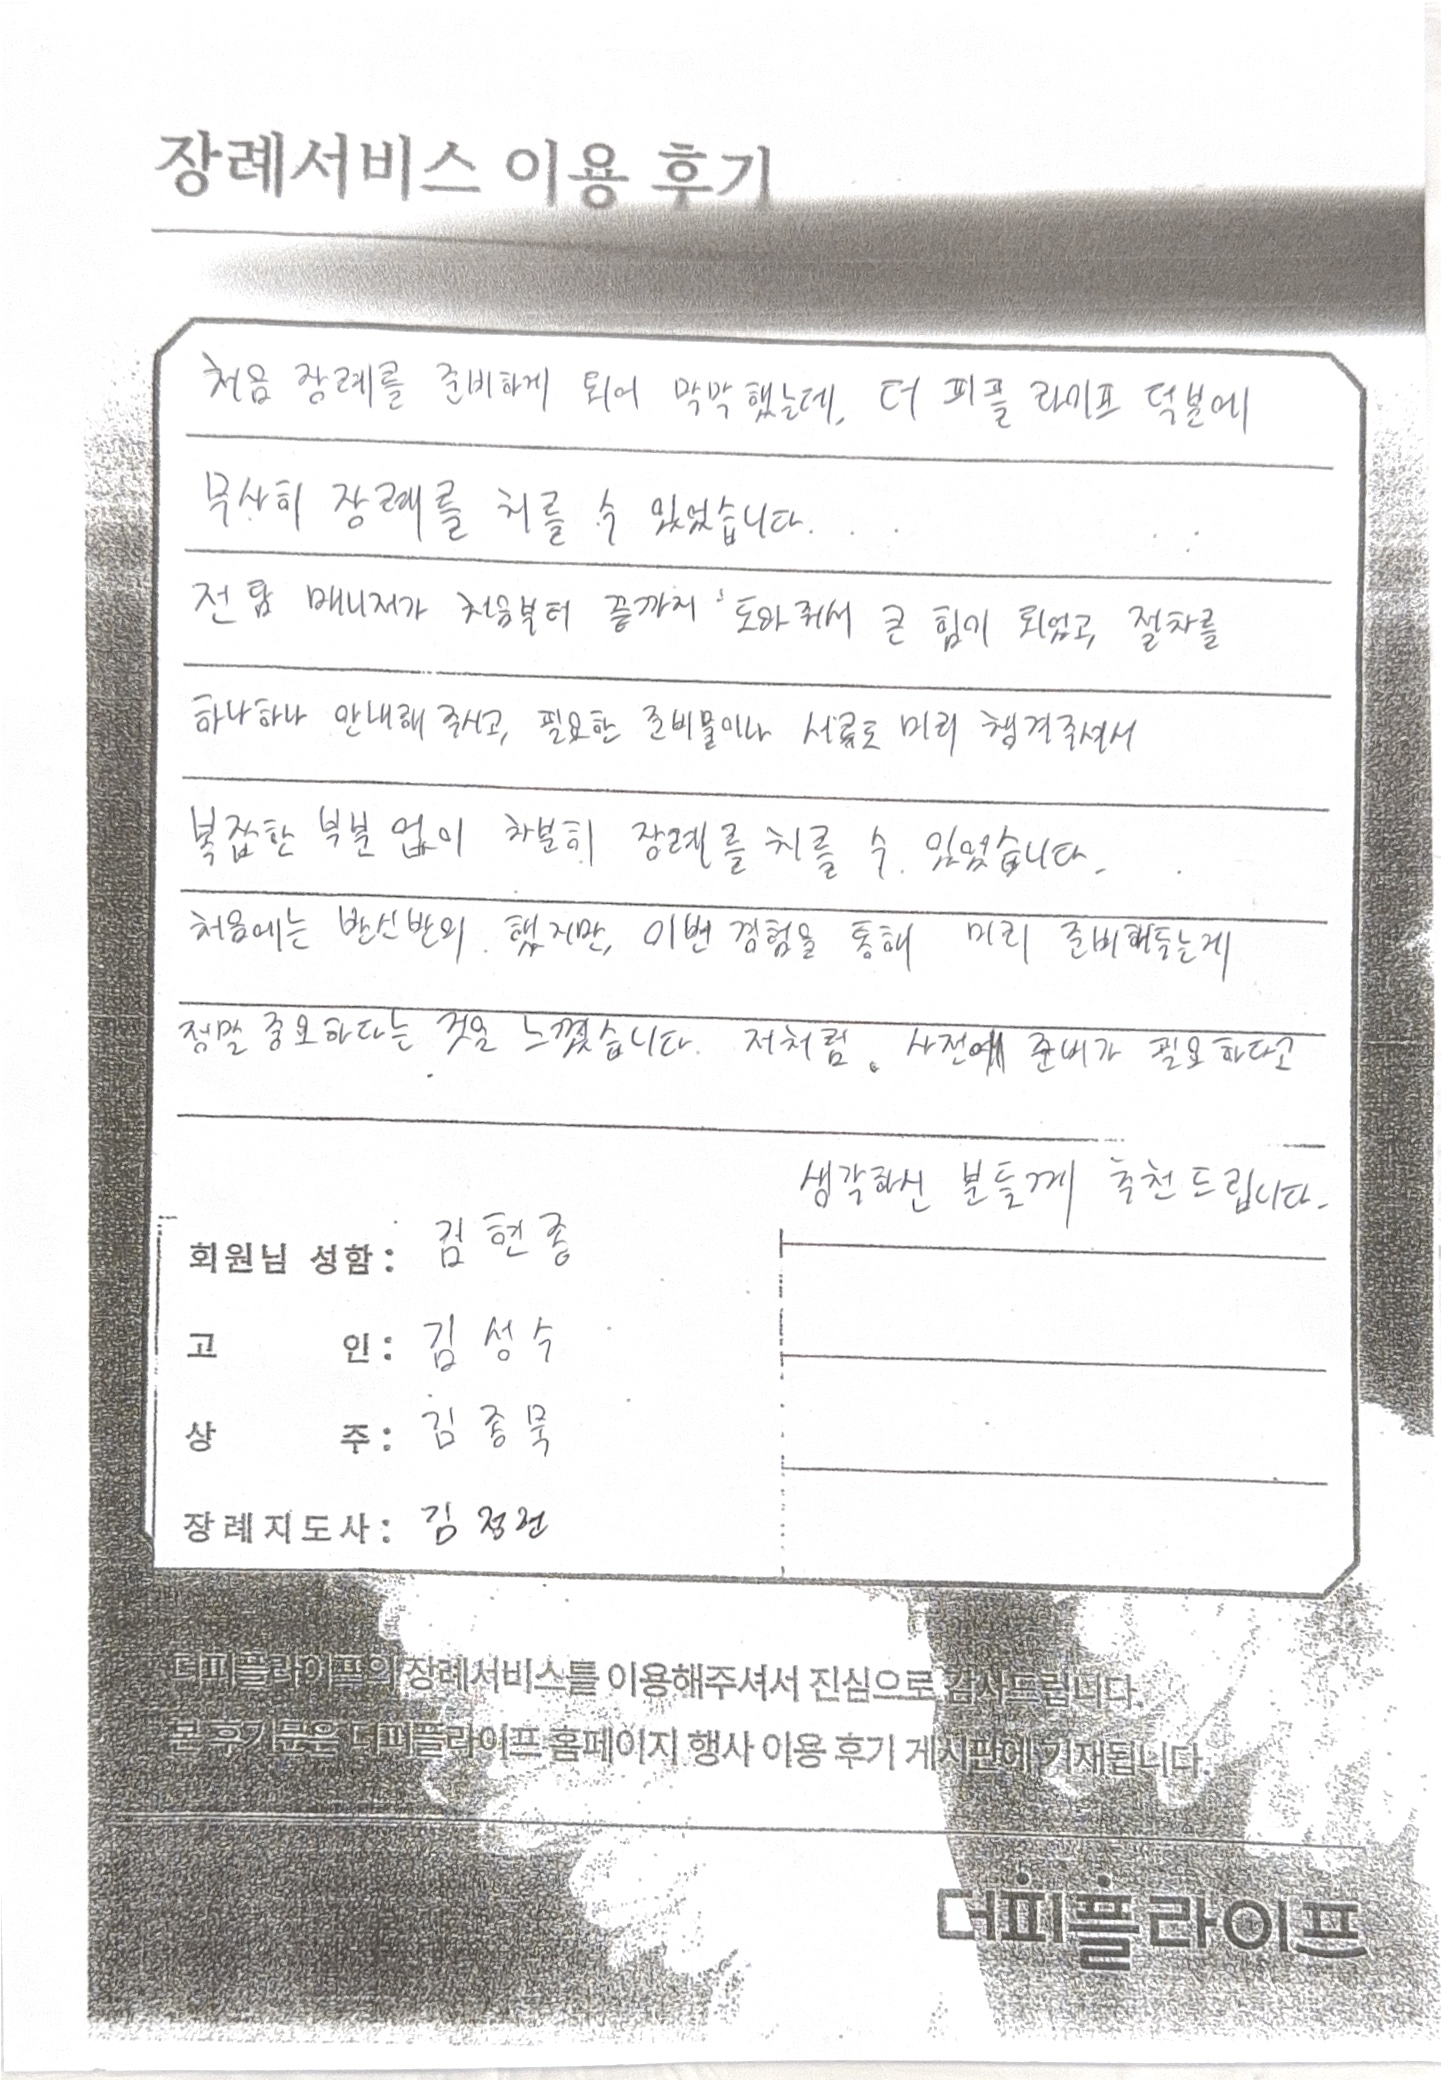 장례서비스 이용 후기
처음 장례를 준비하게 되어 막막했는데, 더 피플 라이프 덕분에
무사히 장례를 치를 수 있었습니다.
전담 매니저가 처음부터 끝까지 도와줘서 큰 힘이 되었고, 절차를
하나하나 안내해 주시고, 필요한 준비물이나 서류도 미리 챙겨주셔서
복잡한 부분 없이 차분히 장례를 치를 수 있었습니다.
처음에는 반신반의 했지만, 이번 경험을 통해 미리 준비해두는게
정말 중요하다는 것을 느꼈습니다. 저처럼 사전에 준비가 필요하다고
생각하신 분들께 추천드립니다.
회원님 성함: 김현종
고 인: 김성수
상 주: 김종묵
장례지도사: 김정현
더피플라이프의 장례서비스를 이용해주셔서 진심으로 감사드립니다.
본 후기문은 더피플라이프 홈페이지 행사 이용 후기 게시판에 기재됩니다.
더피플라이프